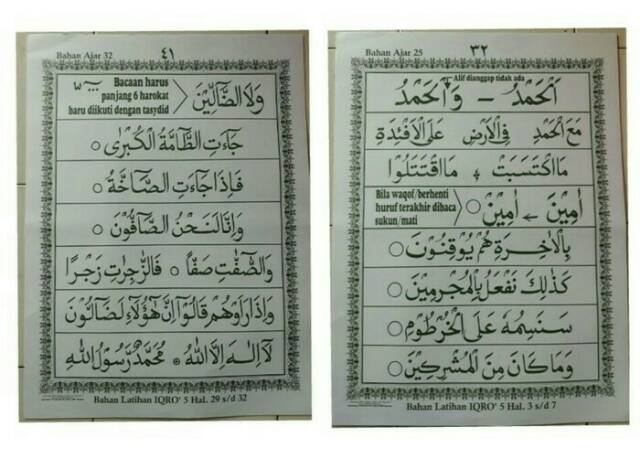 Bahan Ajar 32
٤١
وَلَا الضَّآلِّيْنَ
Bacaan harus
panjang 6 harokat
baru diikuti dengan tasydid
جَآءَتِ الطَّآمَّةُ الْكُبْرٰى ○
فَاِذَا جَآءَتِ الصَّآخَّةُ ○
وَاِنَّا لَنَحْنُ الصَّآفُّوْنَ ○
وَالصّٰٓفّٰتِ صَفًّا ○ فَالزّٰجِرٰتِ زَجْرًا
وَاِذَا رَاَوْهُمْ قَالُوْٓا اِنَّ هٰٓؤُلَآءِ لَضَآلُّوْنَ
لَآ اِلٰهَ اِلَّا اللّٰهُ ۞ مُحَمَّدٌ رَّسُوْلُ اللّٰهِ
Bahan Latihan IQRO' 5 Hal. 29 s/d 32
Bahan Ajar 25
٣٢
Alif dianggap tidak ada
اَلْحَمْدُ - وَالْحَمْدُ
مَعَ الْحَمْدِ فِى الْاَرْضِ عَلَى الْاَفْئِدَةِ
مَا اكْتَسَبَتْ ، مَا اقْتَتَلُوْا
اٰمِيْنَ ← اٰمِيْنَ ○
Bila waqof/berhenti
huruf terakhir dibaca
sukun/mati
بِالْاٰخِرَةِ هُمْ يُوْقِنُوْنَ ○
كَذٰلِكَ نَفْعَلُ بِالْمُجْرِمِيْنَ ○
سَنَسِمُهٗ عَلَى الْخُرْطُوْمِ ○
وَمَا كَانَ مِنَ الْمُشْرِكِيْنَ ○
Bahan Latihan IQRO' 5 Hal. 3 s/d 7